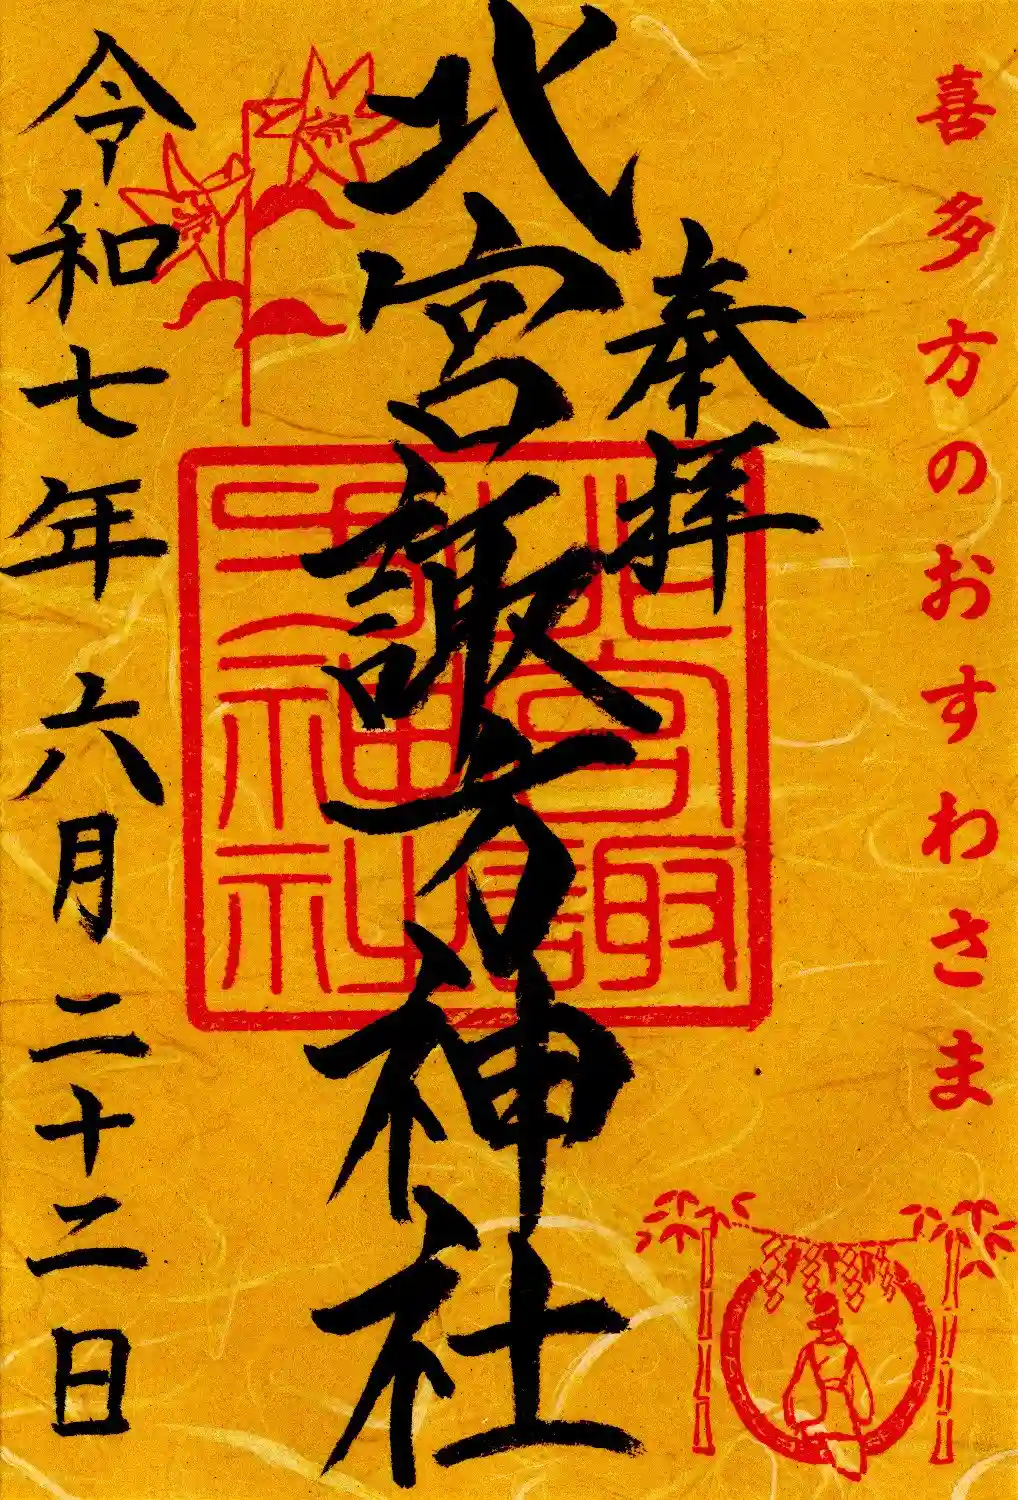 喜多方のおすわさま
奉拝
北宮諏方神社
北宮諏方神社
令和七年六月二十二日